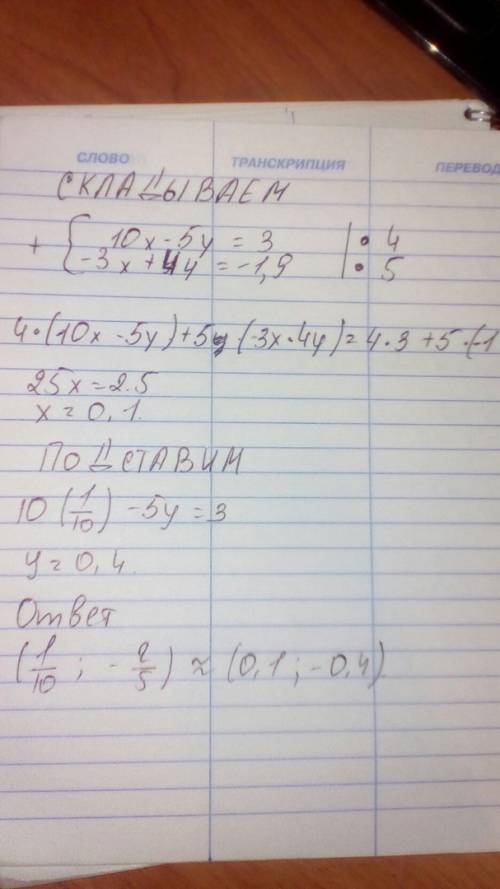 СЛОВО ТРАНСКРИПЦИЯ ПЕРЕВОД
СКЛАДЫВАЕМ
+ { 10x - 5y = 3 | • 4
-3x + 4y = -1,9 | • 5
4•(10x - 5y) + 5y(-3x•4y) = 4•3 + 5•(-1
25x = 2.5
x = 0,1.
ПОДСТАВИМ
10(1/10) - 5y = 3
y = 0,4.
Ответ
(1/10 ; - 2/5) ≈ (0,1 ; -0,4)